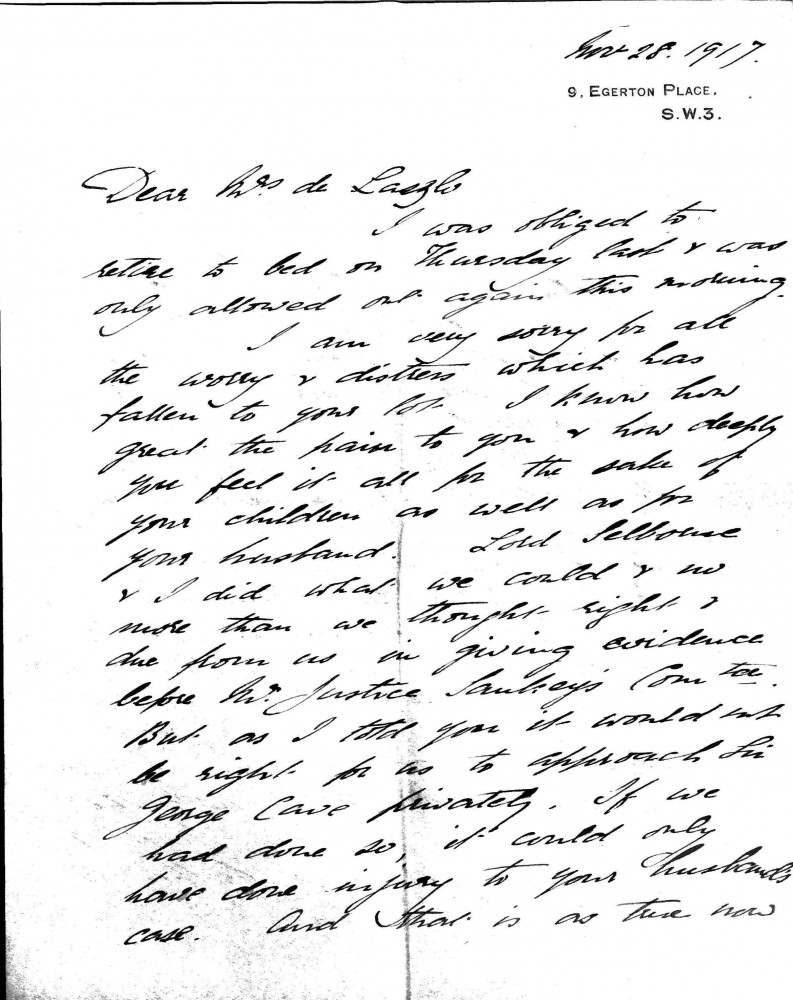 Nov 28. 1917.
9, EGERTON PLACE,
S.W.3.
Dear Mrs de Laszlo
I was obliged to
retire to bed on Thursday last & was
only allowed out again this morning.
I am very sorry for all
the worry & distress which has
fallen to your lot. I know how
great the pain to you & how deeply
you feel it all for the sake of
your children as well as for
your husband. Lord Selborne
& I did what we could & no
more than we thought right &
due from us in giving evidence
before Mr. Justice Sankey's Comtee.
But as I told you it would not
be right for us to approach Sir
George Cave privately. If we
had done so, it could only
have done injury to your husband's
case. And that is as true now